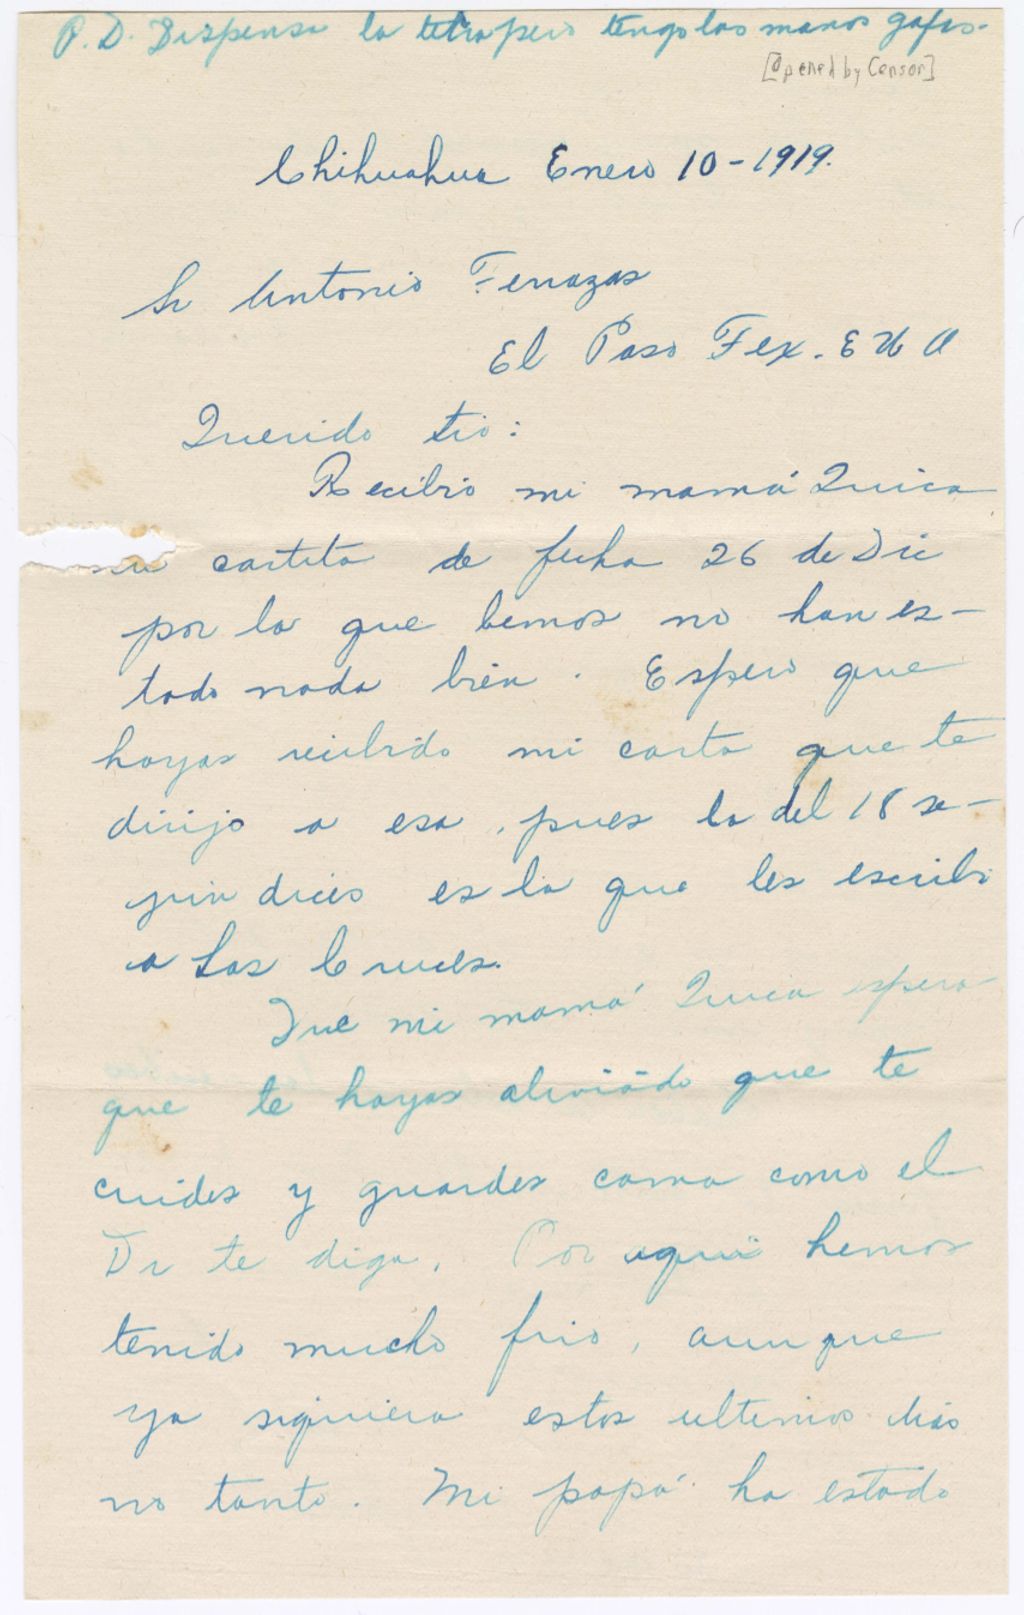 P.D. Dispensa la letra pero tengo las manos gafas.
[Opened by Censor]
Chihuahua Enero 10-1919.
Sr Antonio Terrazas
El Paso Tex. E U A
Querido tio:
Recibio mi mamá Quica
su cartita de fecha 26 de Dic
por la que bemos no han es-
tado nada bien. Espero que
hayas recibido mi carta que te
dirijo a esa, pues la del 18 se-
gun dices es la que les escribi
a Las Cruces.
Que mi mamá Quica espera
que te hayas aliviado que te
cuides y guardes cama como el
Dr te diga. Por aqui hemos
tenido mucho frio, aunque
ya siquiera estos ultimos dias
no tanto. Mi papá ha estado